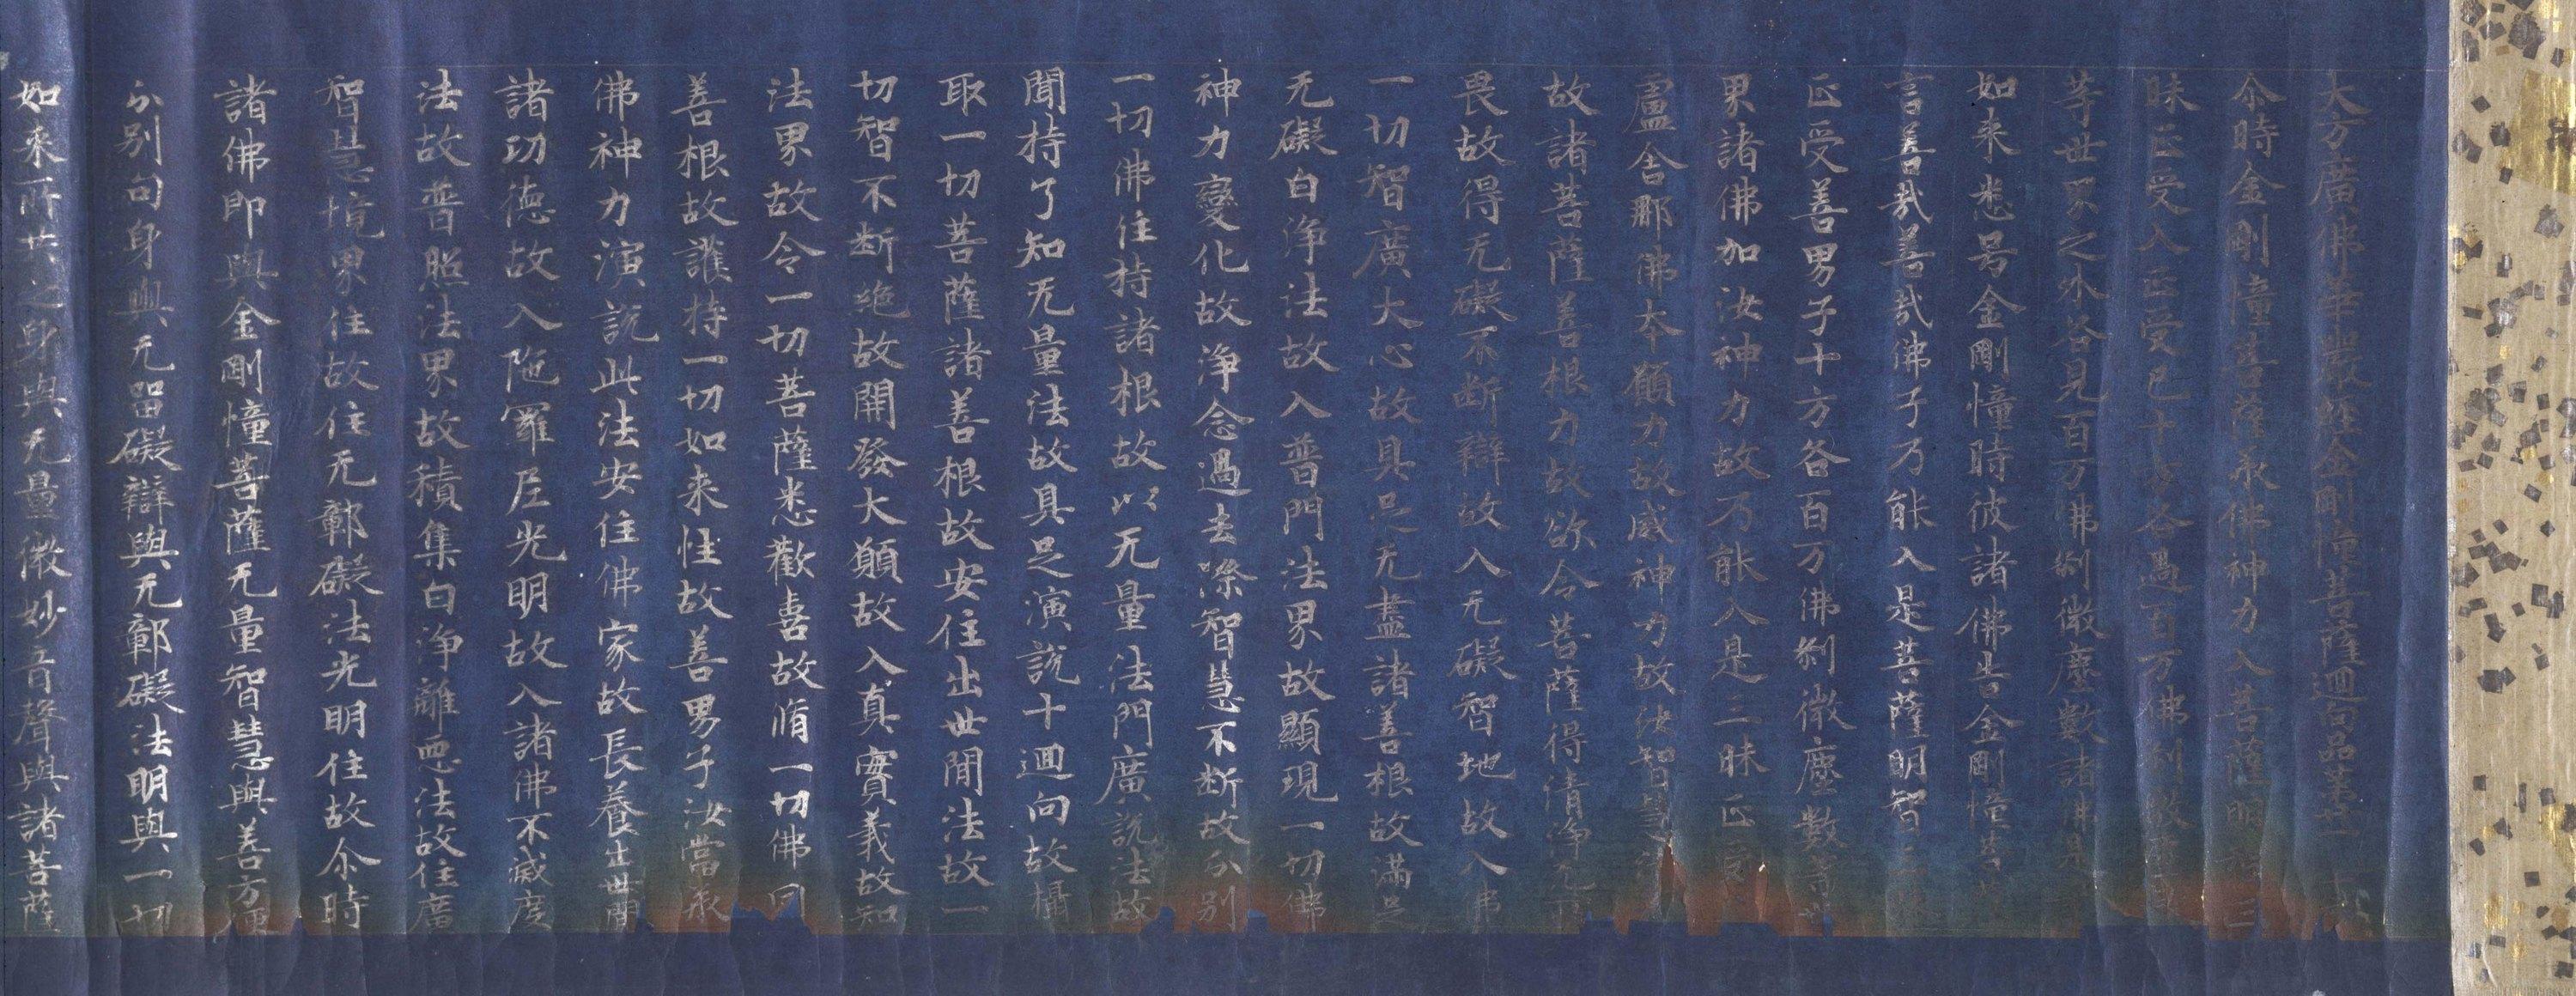 大方廣佛華嚴經金剛幢菩薩迴向品第廿一
尒時金剛幢菩薩承佛神力入菩薩明智三
昧正受入正受已十方各過百万佛刹微塵
等世界之外各見百万佛刹微塵數諸佛是
如来悉号金剛幢時彼諸佛告金剛幢菩
言善哉善哉佛子乃能入是菩薩明智三昧
正受善男子十方各百万佛刹微塵數等
界諸佛加汝神力故乃能入是三昧正受
盧舍那佛本願力故威神力故汝智慧
故諸菩薩善根力故欲令菩薩得清淨无
畏故得无礙不断辯故入无礙智地故入佛
一切智廣大心故具足无盡諸善根故滿足
无礙白淨法故入普門法界故顯現一切佛
神力變化故淨念過去際智慧不断故分别
一切佛住持諸根故以无量法門廣說法故
聞持了知无量法故具足演說十迴向故攝
取一切菩薩諸善根故安住出世間法故一
切智不断絶故開發大願故入真實義故知
法界故令一切菩薩悉歡喜故脩一切佛同
善根故護持一切如来性故善男子汝當承
佛神力演說此法安住佛家故長養出世間
諸功德故入陁羅尼光明故入諸佛不滅度
法故普照法界故積集白淨離悪法故住廣
智慧境界住故住无鄣礙法光明住故尒時
諸佛即與金剛幢菩薩无量智慧與善方便
分别句身與无留礙辯與无鄣礙法明與一切
如来所共之身與无量微妙音聲與諸菩薩